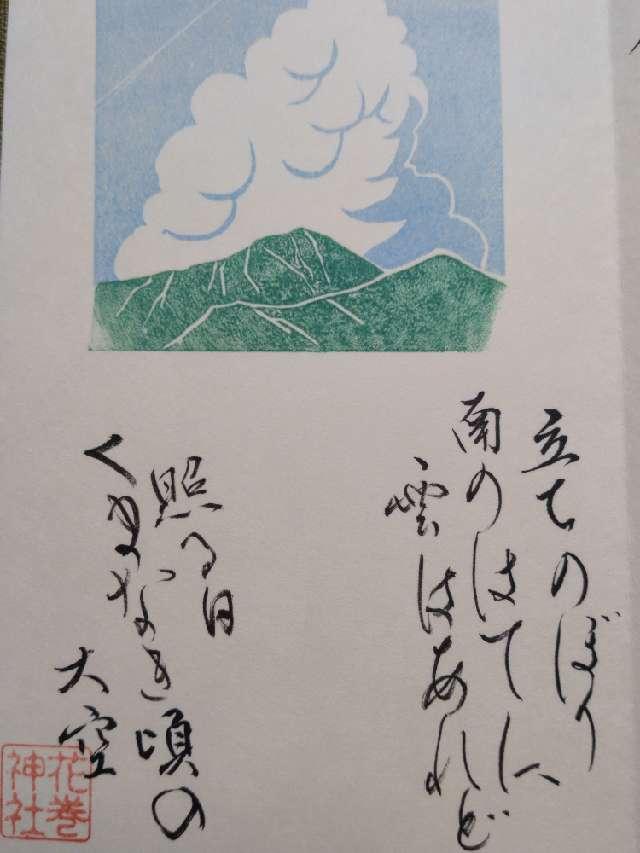 立ちのぼり
南のはてに
雲はあれど
照る日
くまなき頃の
大空
花巻
神社